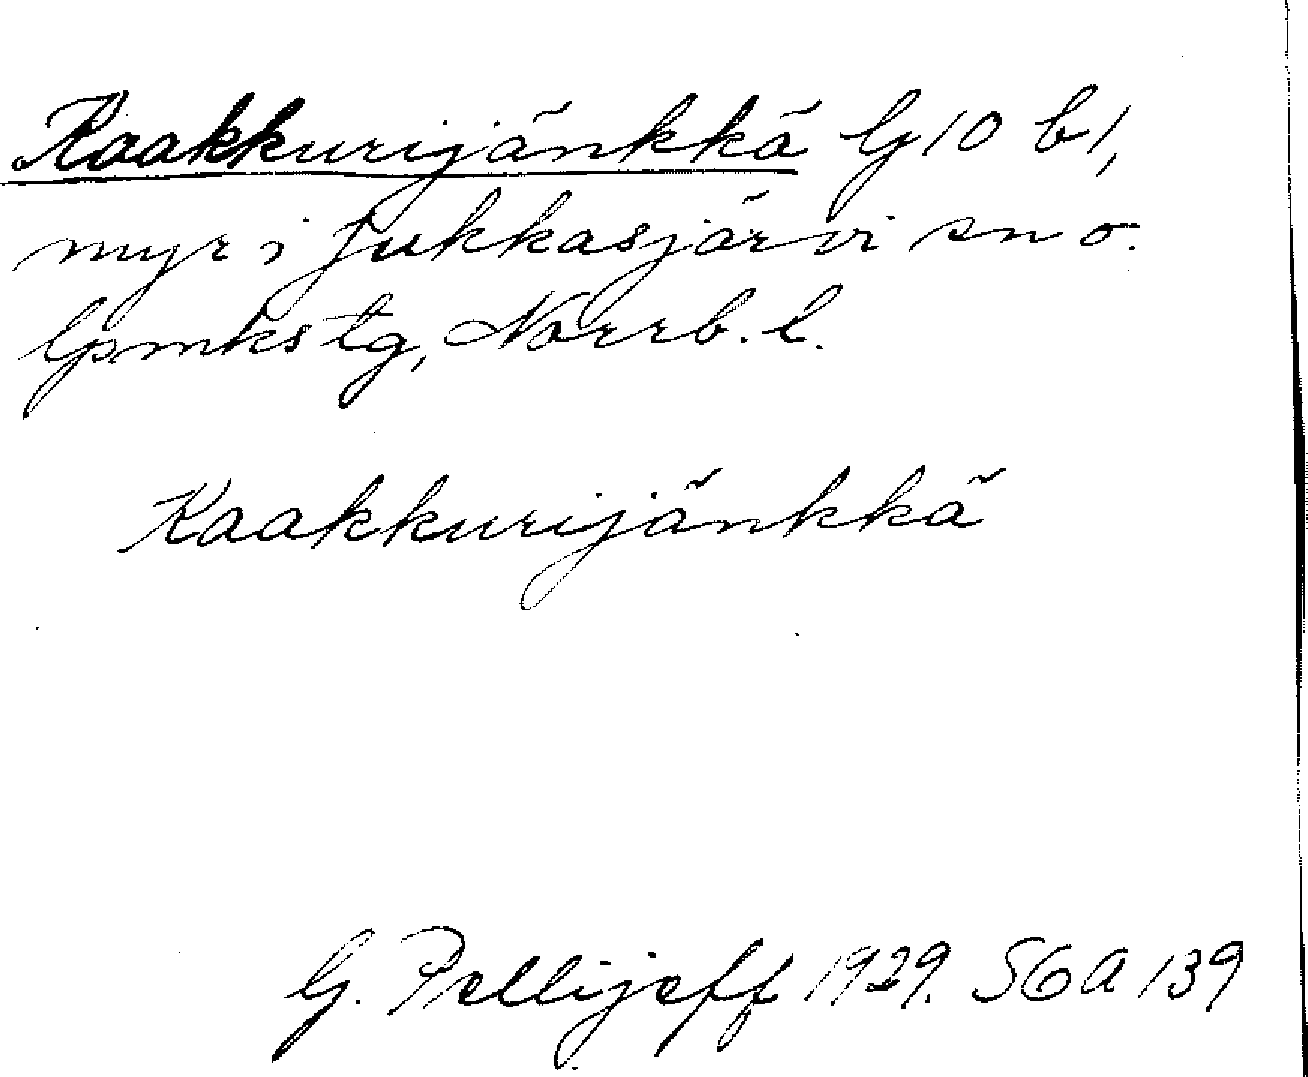 Kaakkurijänkkä G10 b1,
myr i Jukkasjärvi sn o.
Gpmkstg, Norrb. l.
Kaakkurijänkkä
G. Pellijeff 1929. SGA 139